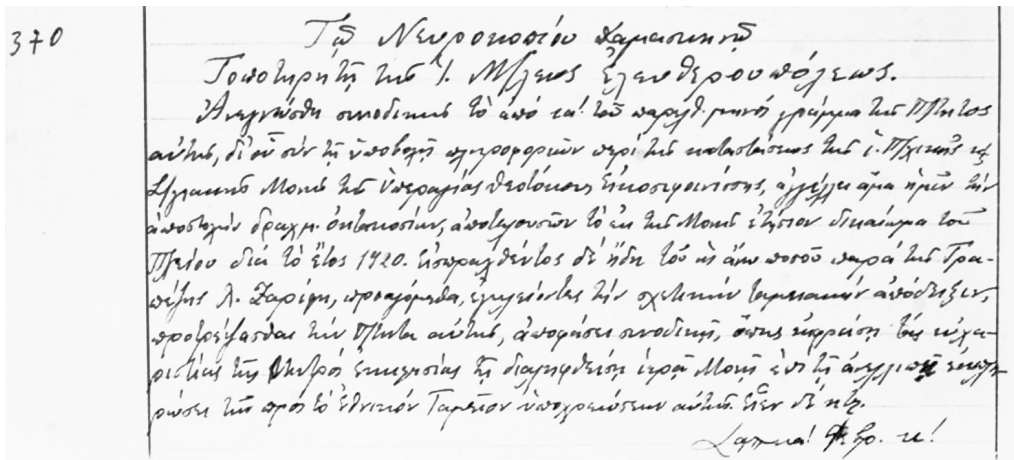 370
Τῷ Νευροκοπίου Δαμασκηνῷ
Τοποτηρητῇ τῆς Ἱ. Μ)λεως Ἐλευθερουπόλεως.
Ἀνεγνώσθη συνοδικῶς τὸ ἀπὸ ια΄ τοῦ παρελθ. μηνὸς γράμμα τῆς Π)τητος
αὐτῆς, δι' οὗ σὺν τῇ ὑποβολῇ πληροφοριῶν περὶ τῆς καταστάσεως τῆς ἱ. Π)χικῆς κ)
Σ)γιακῆς Μονῆς τῆς ὑπεραγίας Θεοτόκου Εἰκοσιφοινίσσης, ἀγγέλλει ἅμα ἡμῖν τὴν
ἀποστολὴν δραχμ. ὀκτακοσίων, ἀποτελουσῶν τὸ ἐκ τῆς Μονῆς ἐτήσιον δικαίωμα τοῦ
Π)χείου διὰ τὸ ἔτος 1920. Εἰσπραχθέντος δὲ ἤδη τοῦ ὡς ἄνω ποσοῦ παρὰ τῆς Τρα-
πέζης Λ. Ζαρίφη, προαγόμεθα, ἐγκλείοντες τὴν σχετικὴν ταμειακὴν ἀπόδειξιν,
προτρέψασθαι τὴν Π)τητα αὐτῆς, ἀποφάσει συνοδικῇ, ὅπως ἐκφράσῃ τὰς εὐχα-
ριστίας τῆς Μητρὸς Ἐκκλησίας τῇ διαληφθείσῃ ἱερᾷ Μονῇ ἐπὶ τῇ ἐκπλη-
ρώσει τῆς πρὸς τὸ Ἐθνικὸν Ταμεῖον ὑποχρεώσεως αὐτῆς. Εἴεν δὲ κτλ.
Φεβρ. κ΄